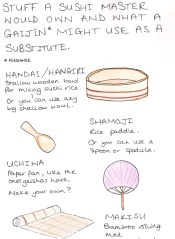 STUFF A SUSHI MASTER
WOULD OWN AND WHAT A
GAIJIN* MIGHT USE AS A
SUBSTITUTE.
* FOREIGNER
HANDAI/HANGIRI
Shallow wooden bowl
for mixing sushi rice.
Or you can use any
big shallow bowl.
SHAMOJI
Rice paddle.
Or you can use a
spoon or spatula.
UCHIWA
Paper fan, like the
ones geishas have.
Make your own?
MAKISU
Bamboo rolling
mat.